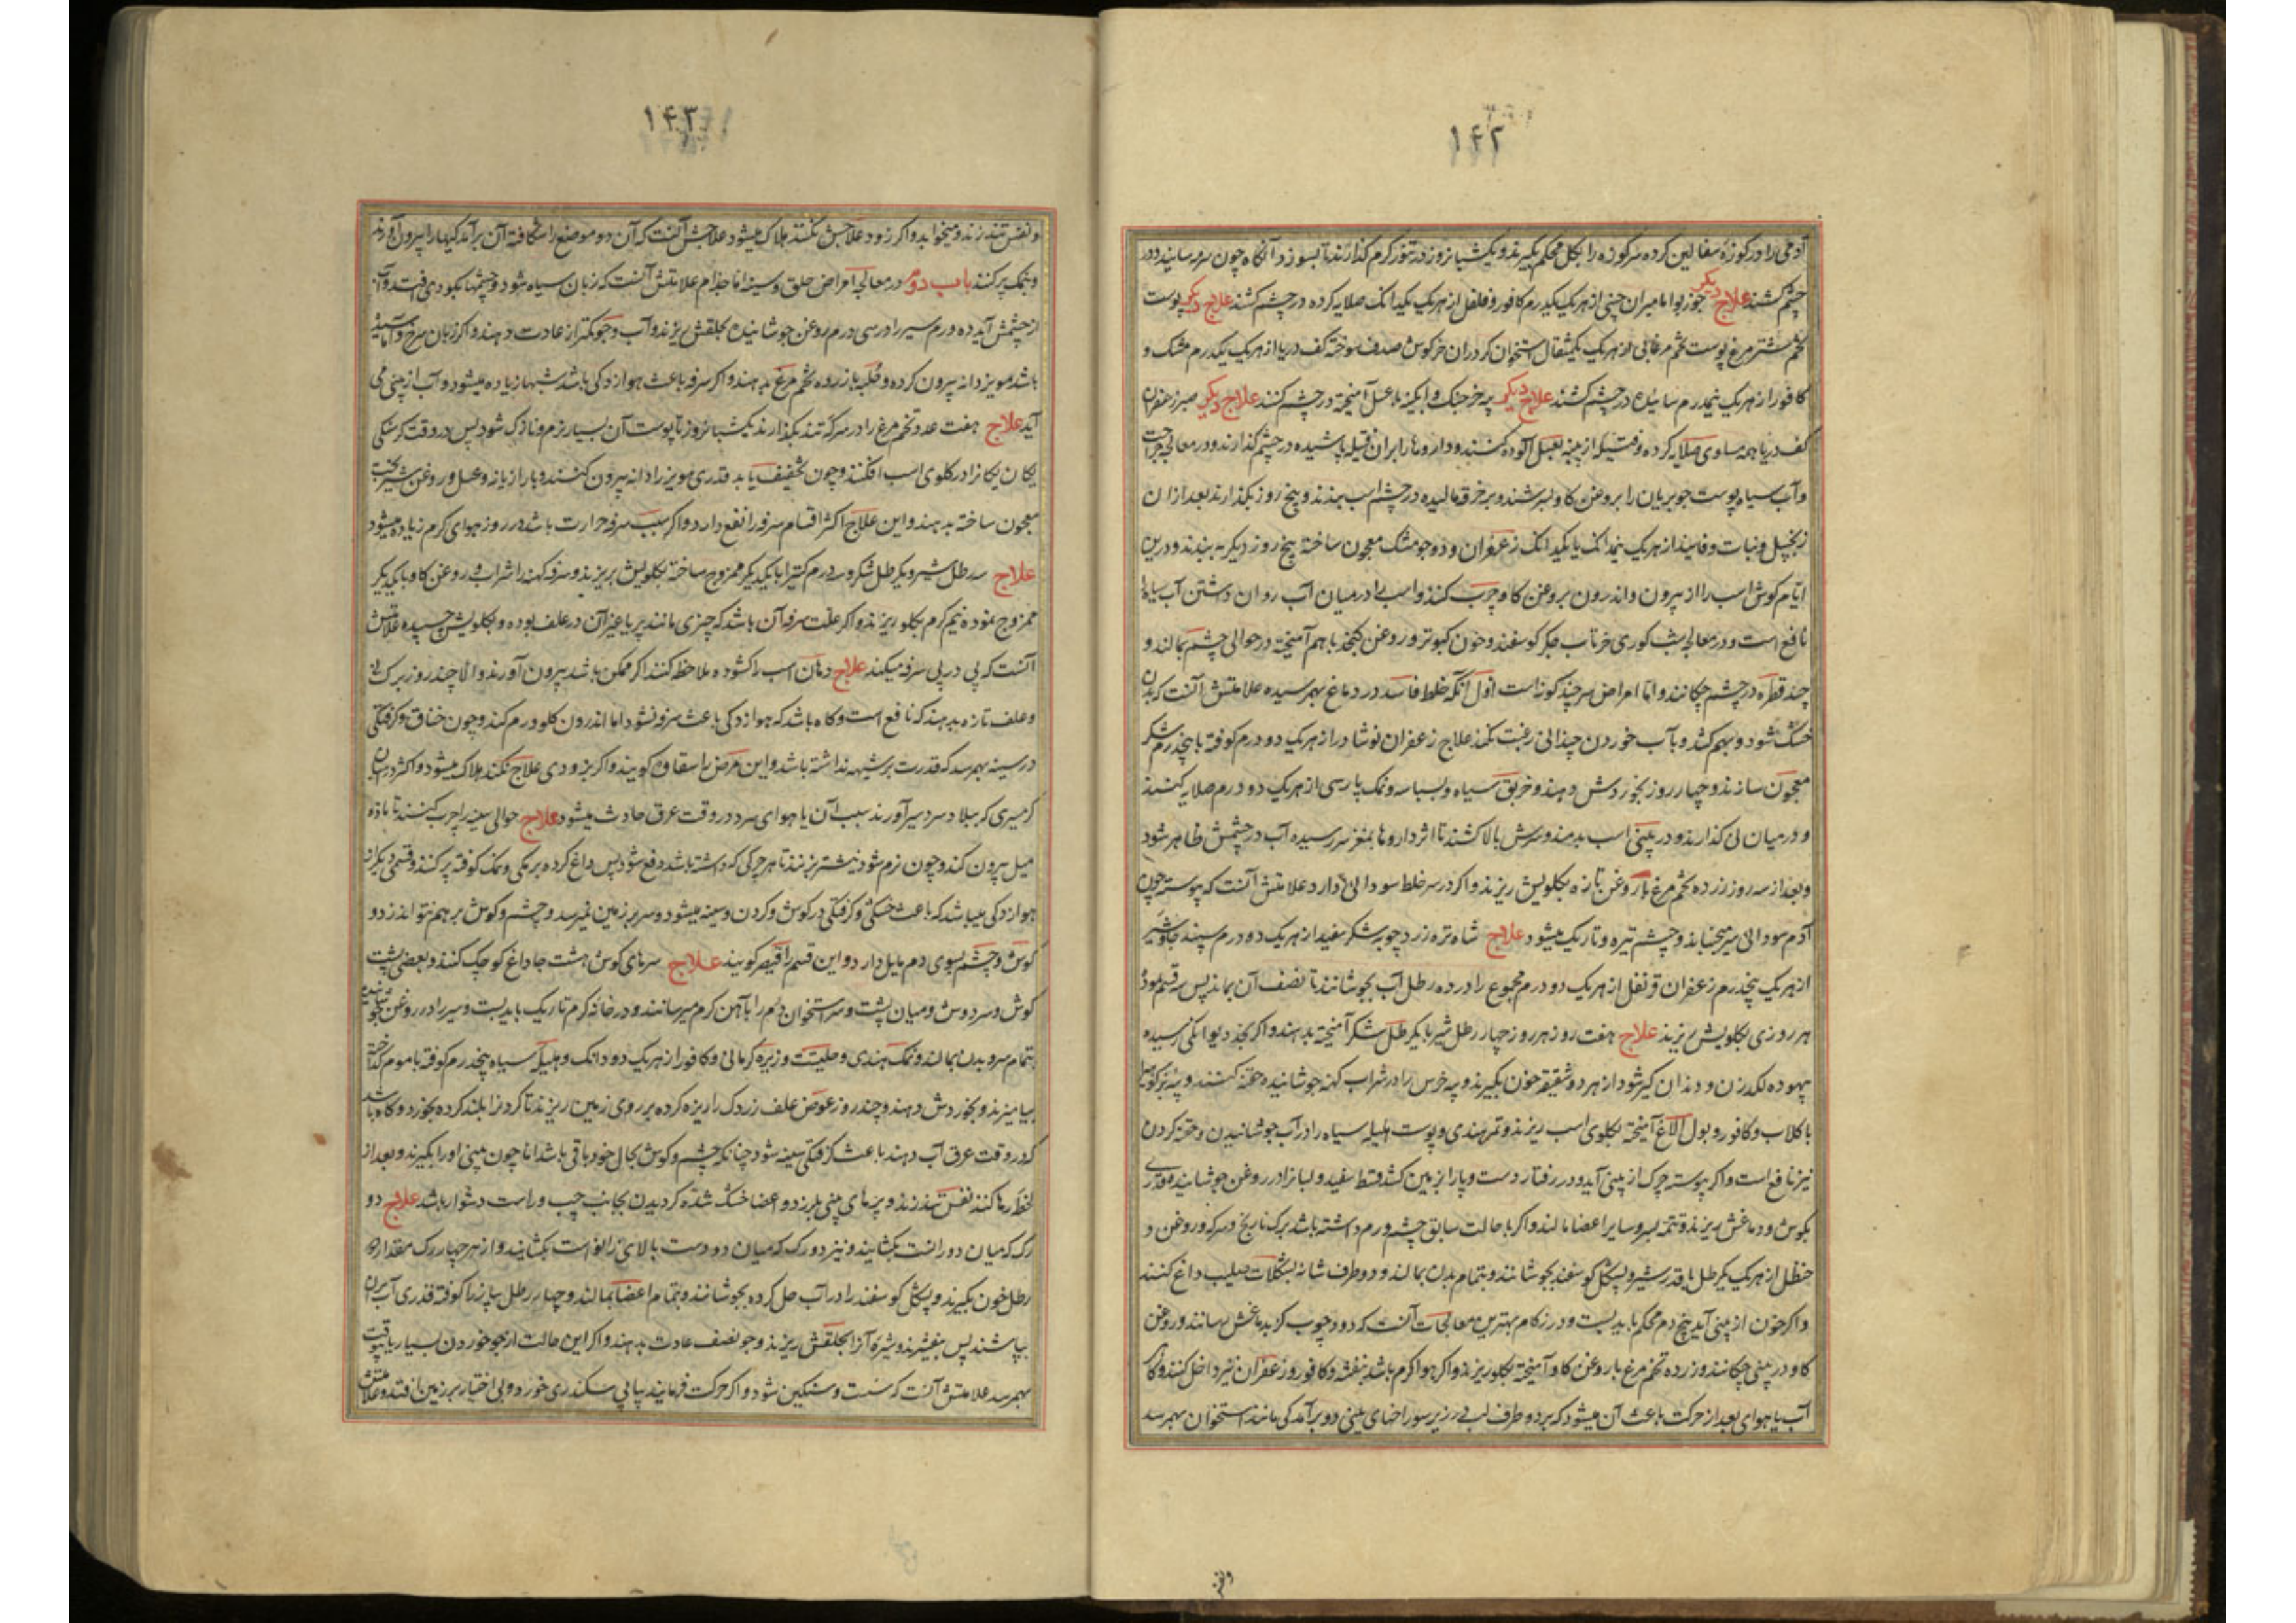 ۱۴۲
آدمی را در کوزه سفالین کرده سر کوزه را بکل محکم بگیرند و یکشبانروز در تنور گرم گذارند تا بسوزد آنگاه چون سرمه سایند و در
چشم کشند علاج دیگر جوز بوا مامیران چینی از هر یک یکدرم کافور و فلفل از هر یک یکدانک صلایه کرده در چشم کشند علاج دیگر پوست
تخم شتر مرغ پوست تخم مرغابی از هر یک یکمثقال استخوان کردران خرگوش صدف سوخته کف دریا از هر یک یکدرم مشک و
کافور از هر یک نیمدرم سائیده در چشم کشند علاج دیگر پیه خرچنگ و ابگینه با عسل آمیخته در چشم کنند علاج دیگر صبر زعفران
کف دریا همه مساوی صلایه کرده و فتیله از پنبه بعسل آلوده کنند و داروها را بران فتیله پاشیده در چشم گذارند و در معالجه جراحت
و آب سیاه پوست جو بریان را بروغن کاو بسرشند و بر خرقه مالیده در چشم اسب ببندند و پنج روز بگذارند بعد از ان
زنجبیل و نبات و فانیذ از هر یک نیمدانک یا یکدانک زعفران و دو جو مشک معجون ساخته پنج روز دیگر به بندند و درین
ایام گوش اسب را از بیرون و اندرون بروغن کاو چرب کنند و اسب را در میان آب روان داشتن آب سیاه را
نافع است و در معالجه شب کوری خرتاب جگر کوسفند و خون کبوتر و روغن کنجد با هم آمیخته در حوالی چشم بمالند و
چند قطره در چشم چکانند و اما امراض سر چند کونه است اول آنکه خلط فاسد در دماغ بهمرسیده علامتش آنست که بدن
خشک شود و بهم کشد و با آب خوردن چندانی رغبت نکند علاج زعفران نوشادر از هر یک دو درم کوفته با پنجدرم شکر
معجون سازند و چهار روز بخوردش دهند و خربق سیاه و بسباسه و نمک پارسی از هر یک دو درم صلایه کنند
و در میان نی گذارند و در بینی اسب بدمند و سرش بالا کشند تا اثر داروها بمغز سر رسیده آب در چشمش ظاهر شود
و بعد از سه روز زرده تخم مرغ با روغن تازه بکلویش ریزند و اکر در سر خلط سودائی دارد علامتش آنست که پیوسته چون
آدم سودائی سر میجنباند و چشم تیره و تاریک میشود علاج شاه تره زرد چوبه شکر سفید از هر یک دو درم سپند جاوشیر
از هر یک پنجدرم زعفران قرنفل از هر یک دو درم مجموع را در ده رطل آب بجوشانند تا نصف آن بماند پس سه قسم نموده
هر روزی بکلویش ریزند علاج هفت روز هر روز چهار رطل شیر با یکرطل شکر آمیخته بدهند و اکر بحد دیوانکی رسیده
بیهوده لکد زن و دندان گیر شود از هر دو شقیقه خون بگیرند و پیه خرس را در شراب کهنه جوشانیده حقنه کنند و پیه بز کوهی را
با کلاب و کافور و بول الاغ آمیخته بکلوی اسب ریزند و تمر هندی و پوست هلیله سیاه را در آب جوشانیدن و حقنه کردن
نیز نافع است و اکر پیوسته چرک از بینی آید و در رفتار دست و پا را بزمین کشد قسط سفید و لبانرا در روغن جوشانیده قدری
بکوش و دماغش ریزند و تتمه بسر و سایر اعضا مالند و اکر با حالت سابق چشم ورم داشته باشد برک نارنج و سرکه و روغن و
حنظل از هر یک یکرطل با قدر شیر و پشکل کوسفند بجوشانند و بتمام بدن بمالند و دو طرف شانه بشکلات صلیب داغ کنند
و اکر خون از بینی آید بیخ دم محکم باید بست و در زکام بهترین معالجات آنست که دود چوب کز بدماغش رسانند و روغن
کاو در بینی چکانند و زرده تخم مرغ با روغن کاو آمیخته بکلو ریزند و اکر هوا کرم باشد بنفشه و کافور و زعفران نیز داخل کنند و کاه
آب یا هوای بعد از حرکت باعث آن میشود که بر دو طرف لب در زیر سوراخهای بینی دو برآمدگی مانند استخوان بهمرسد
۱۴۳
و نفس تند زند و میخوابد و اکر زود علاجش نکنند هلاک میشود علاجش آنست که آن دو موضع را شکافته آن برآمدکیها را بیرون آورند
و بنمک پر کنند باب دوم در معالجه امراض حلق و سینه اما جذام علامتش آنست که زبان سیاه شود و چشمها بکبودی افتد و آب
از چشمش آید ده درم سیر را در سی درم روغن جوشانیده بحلقش ریزند و آب و جو کمتر از عادت دهند و اکر زبان سرخ و آماسیده
باشد مویز دانه بیرون کرده و حلبه با زرده تخم مرغ بدهند و اکر سرفه باعث هوازدکی باشد شبها زیاده میشود و آب از بینی می
آید علاج هفت عدد تخم مرغ را در سرکه تند بگذارند یکشبانروز تا پوست آن بسیار نرم و نازک شود پس در وقت کرسنکی
یکان یکانرا در کلوی اسب افکنند و چون تخفیف یابد قدری مویز را دانه بیرون کنند و با رازیانه و عسل و روغن شیر پخت
معجون ساخته بدهند و این علاج اکثر اقسام سرفه را نفع دارد و اکر سبب سرفه حرارت باشد در روز هوای کرم زیاده میشود
علاج سه رطل شیر و یکرطل شکر و سه درم کتیرا با یکدیگر ممزوج ساخته بکلویش بریزند و سرفه کهنه را شراب و روغن کاو با یکدیگر
ممزوج نموده نیم کرم بکلو ریزند و اکر علت سرفه آن باشد که چیزی مانند پر یا غیر آن در علف بوده و بکلویش چسپیده علامتش
آنست که پی در پی سرفه میکند علاج دهان اسب را کشوده ملاحظه کنند اکر ممکن باشد بیرون آورند و الا چند روز برک نی
و علف تازه بدهند که نافع است و کاه باشد که هوازدکی باعث سرفه نشود اما اندرون کلو ورم کند و چون خناق و کرفتکی
در سینه بهمرسد که قدرت بر شیهه نداشته باشد و این مرض را سقاوه کویند و اکر بزودی علاج نکنند هلاک میشود و اکثر در اسبان
کرمسیری که ببلاد سردسیر آورند سبب آن یا هوای سرد در وقت عرق حادث میشود علاج حوالی سینه را چرب کنند تا ماده
میل بیرون کند و چون نرم شود نیشتر بزنند تا هر چرکی که داشته باشد دفع شود پس داغ کرده بر یکی و نمک کوفته پر کنند و قسمی دیگر از
هوازدکی میباشد که باعث خشکی و کرفتکی در کوش و کردن و سینه میشود و سر بر زمین نمیرسد و چشم و کوش بر هم نتواند زد و
کوش و چشم بسوی دم مایل دارد و این قسم را قیصر کویند علاج سرهای کوش هشت جا داغ کوچک کنند و بعضی پشت
کوش و سر دوش و میان پشت و سر استخوان دم را بآهن کرم میرسانند و در خانه کرم تاریک باید بست و سیر را در روغن جوشانیده
بتمام سر و بدن بمالند و نمک هندی و حلتیت و زیره کرمانی و کافور از هر یک دو دانک و هلیله سیاه پنجدرم کوفته با موم گداخته
بیامیزند و بخوردش دهند و چند روز عوض علف زردک را ریزه کرده بر روی زمین ریزند تا کردنرا بلند کرده بخورد و کاه باشد
که در وقت عرق آب دهند باعث کرفتکی سینه شود چنانکه چشم و کوش بحال خود باقی باشد اما چون بینی او را بگیرند و بعد از
لحظه رها کنند نفس تند زند و پرهای بینی بلرزد و اعضا خشک شده کردیدن بجانب چپ و راست دشوار باشد علاج دو
رک که میان دو رانست بکشایند و نیز دو رک که میان دو دست بالای زانو است بکشایند و از هر چهار رک مقدار ده
رطل خون بگیرند و پشکل کوسفند را در آب حل کرده بجوشانند و بتمام اعضا بمالند و چهار رطل پیاز را کوفته قدری آب بران
بپاشند پس بیفشرند و شیره آنرا بحلقش ریزند و جو نصف عادت بدهند و اکر این حالت از جو خوردن بسیار یا بیوقت
بهمرسد علامتش آنست که سست و سنکین شود و اکر حرکت فرمایند پیاپی سکندری خورد و بی اختیار بر زمین افتد و علامتش